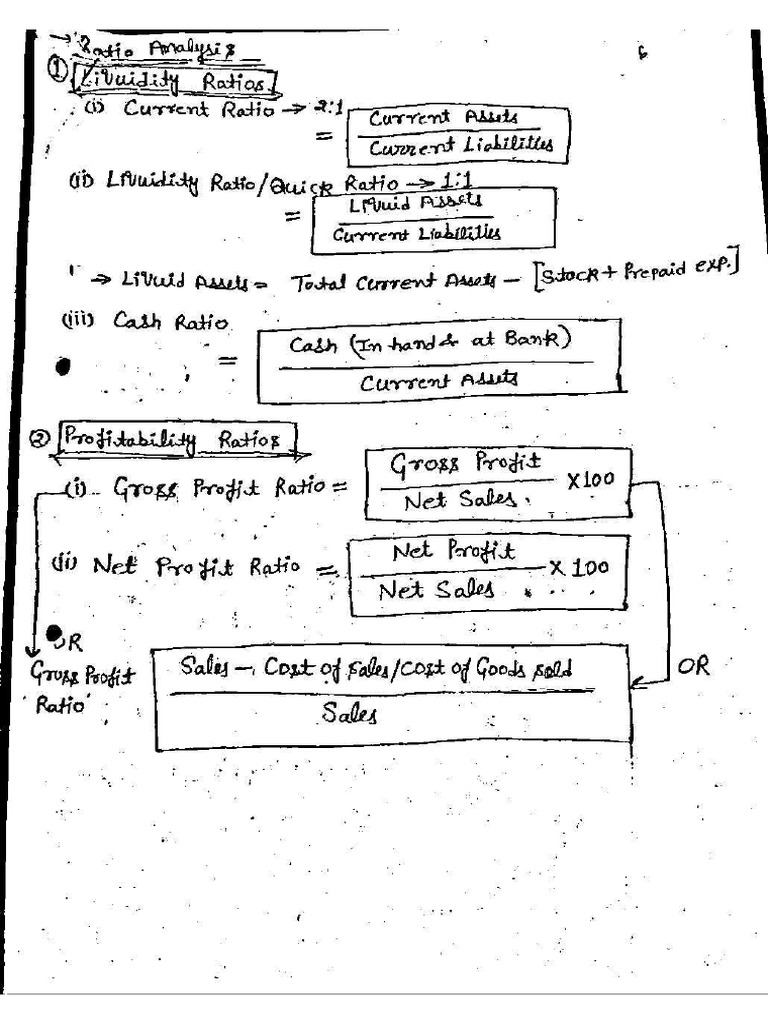 → Ratio Analysis
6
① Liquidity Ratios
(i) Current Ratio → 2:1
= Current Assets
Current Liabilities
(ii) Liquidity Ratio/Quick Ratio → 1:1
= Liquid Assets
Current Liabilities
→ Liquid Assets = Total Current Assets - [Stock + Prepaid exp.]
(iii) Cash Ratio
= Cash (In hand & at Bank)
Current Assets
② Profitability Ratios
(i) Gross Profit Ratio = Gross Profit
Net Sales × 100
(ii) Net Profit Ratio = Net Profit
Net Sales × 100
OR
Gross Profit
Ratio
Sales - Cost of sales/Cost of Goods sold
Sales
OR